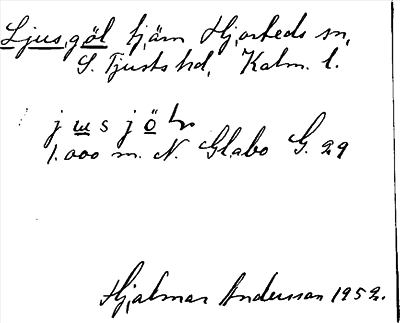 Ljusgöl tjärn Hjorteds sn,
S. Tjusts hd, Kalm. l.
jusjöl
1.000 m. N. Glabo G. 29
Hjalmar Andersson 1952.